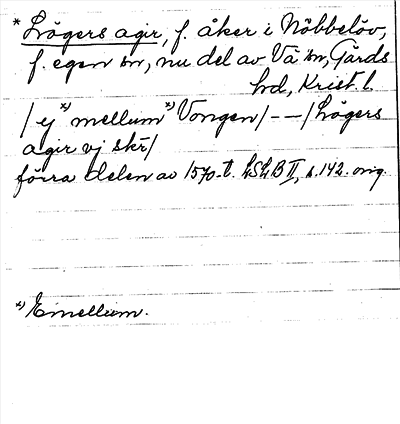 * Lögers agir, f. åker i Nöbbelöv,
f. egen sn, nu del av Vä sn, Gärds
hd, Krist. l.
/ ej x) mellum x) Vongen /--/ Lögers
agir vj skr/
förra delen av 1570-t. LSLB II, s. 142. orig.
x) Emellum.